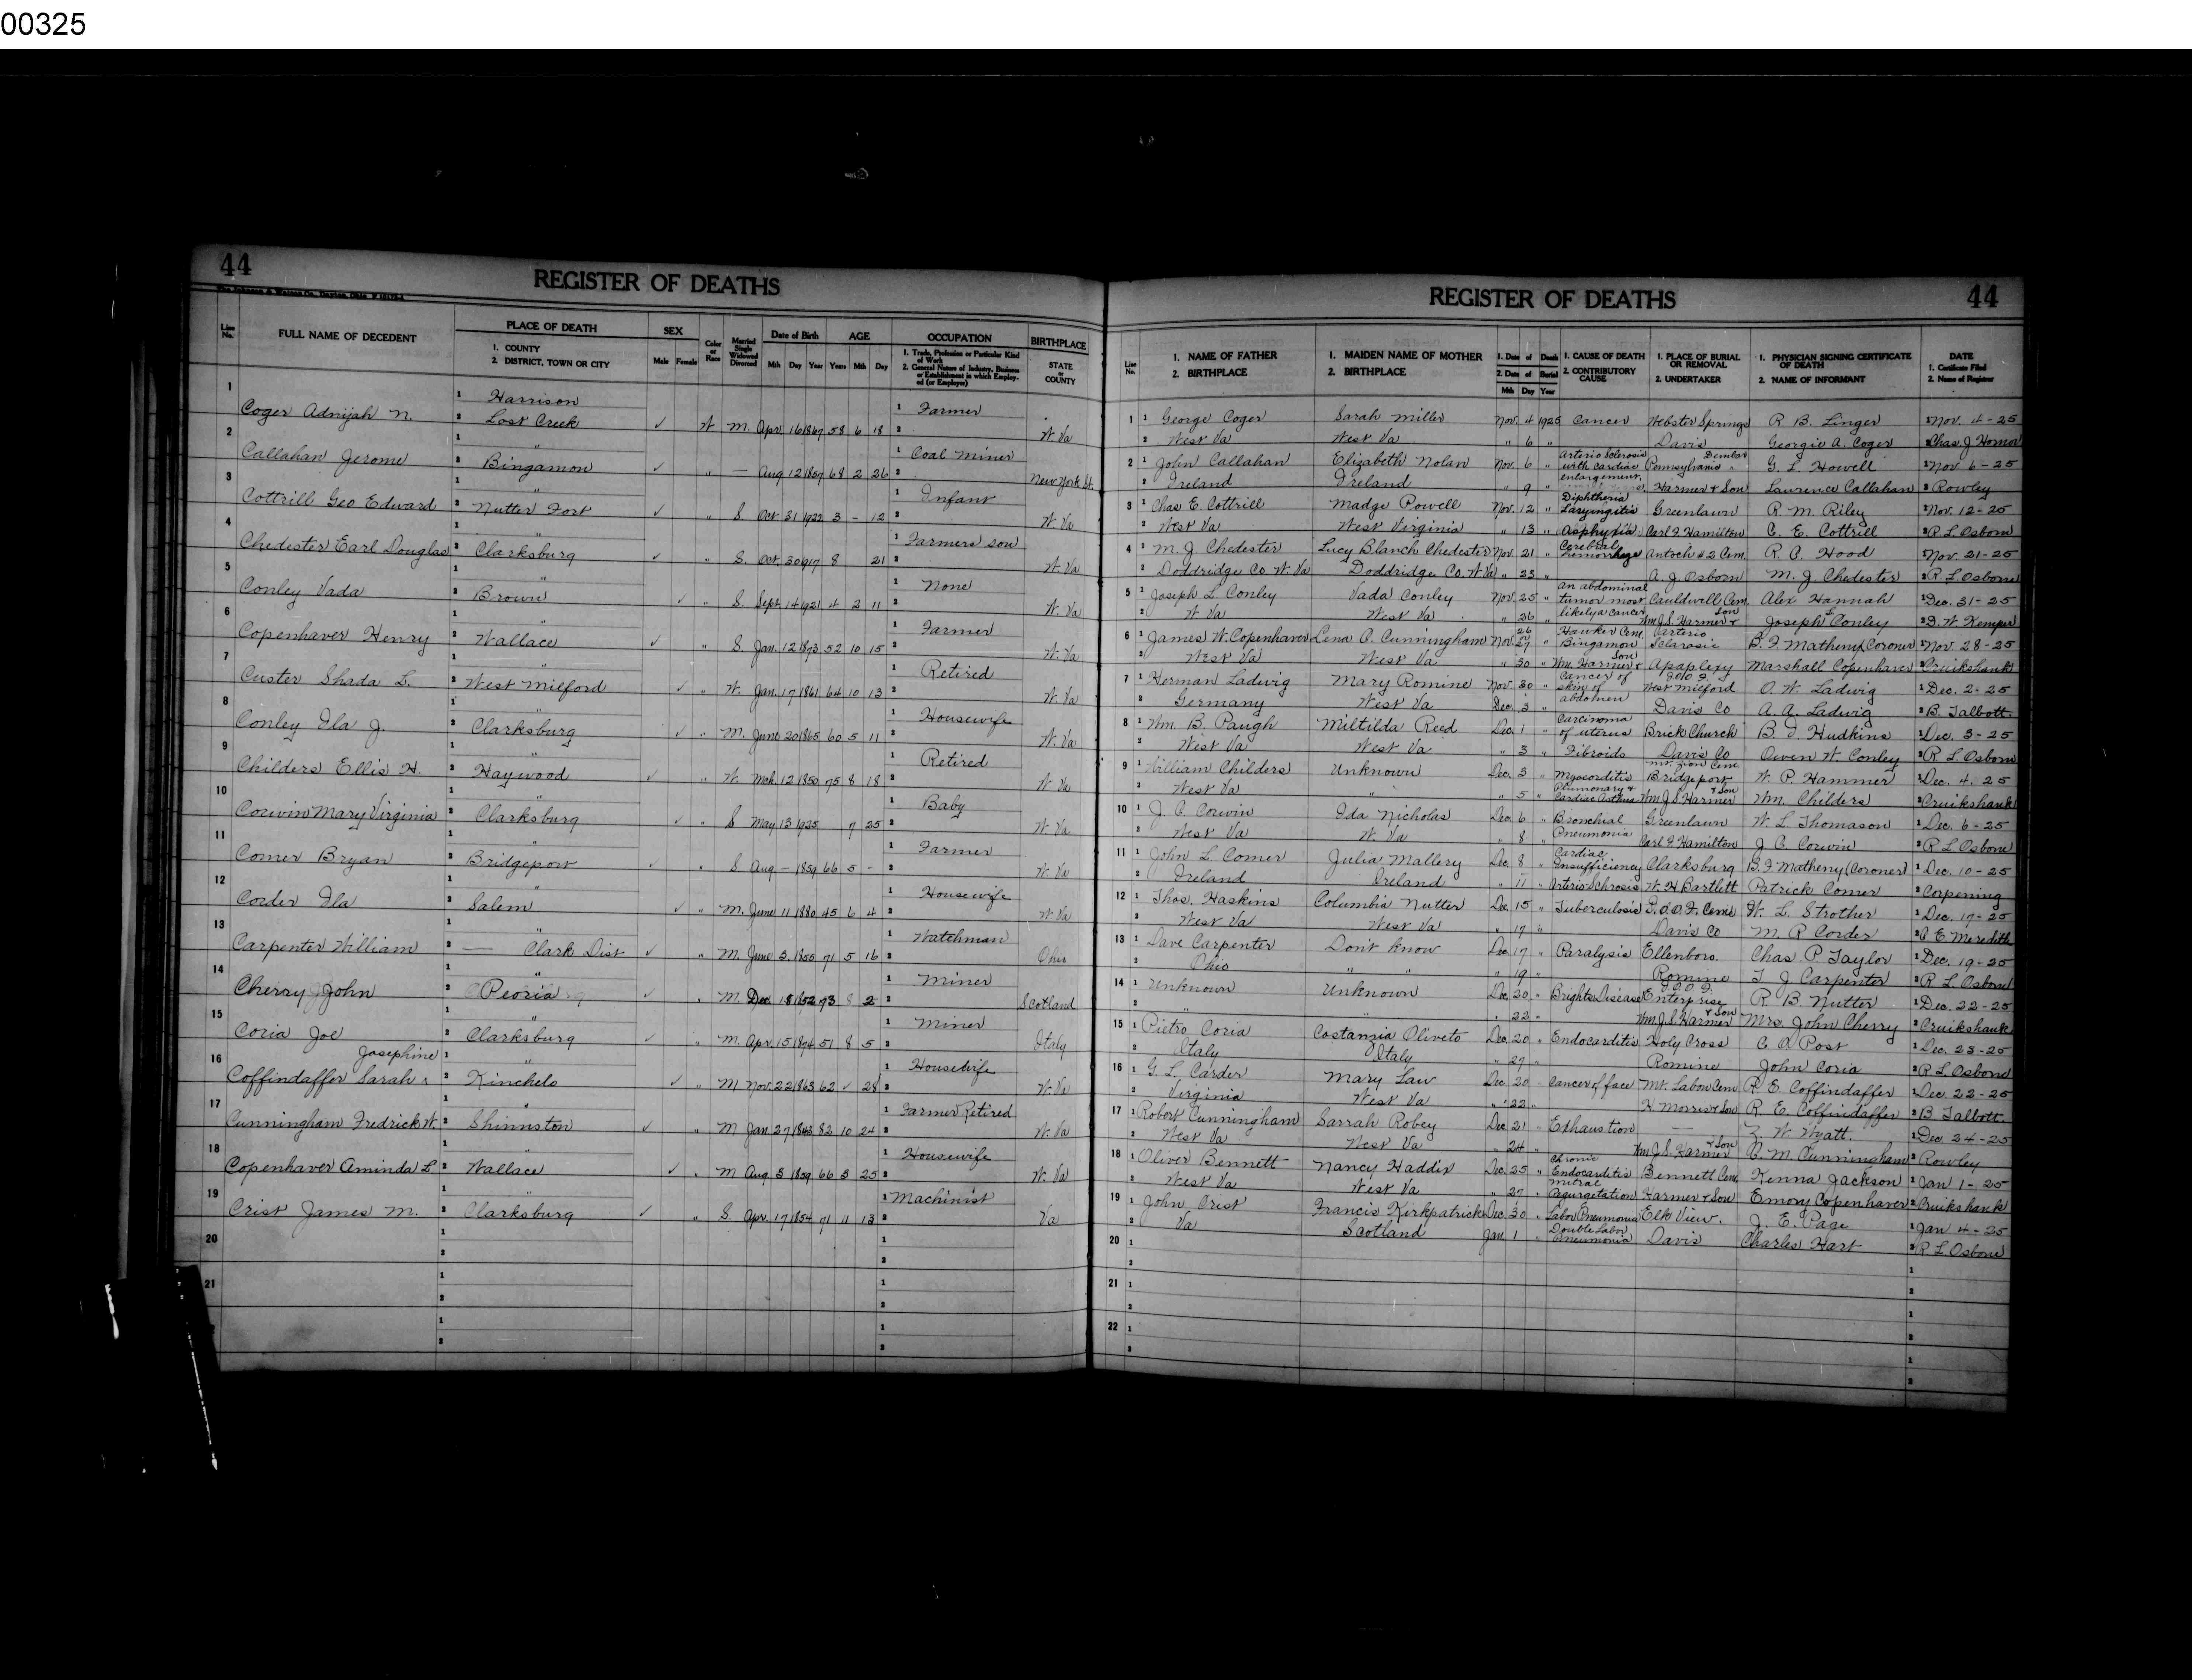 00325
44
REGISTER OF DEATHS
Line No.
FULL NAME OF DECEDENT
PLACE OF DEATH
1. COUNTY
2. DISTRICT, TOWN OR CITY
SEX
Male Female
Color or Race
Married Single Widowed Divorced
Date of Birth
Mth Day Year
AGE
Years Mth Day
OCCUPATION
1. Trade, Profession or Particular Kind of Work
2. General Nature of Industry, Business or Establishment in which Employed (or Employer)
BIRTHPLACE
STATE or COUNTY
1 Coger Adnijah N. 1 Harrison 2 Lost Creek ✓ W M. Apr. 16 1867 58 6 18 1 Farmer 2 W. Va
2 Callahan Jerome 1 " 2 Bingamon ✓ " — Aug. 12 1857 68 2 26 1 Coal Miner 2 New York St.
3 Cottrill Geo Edward 1 " 2 Nutter Fort ✓ " S Oct 31 1922 3 – 12 1 Infant 2 W. Va
4 Chedester Earl Douglas 1 " 2 Clarksburg ✓ " S. Oct. 30 1917 8 21 1 Farmers son 2 W. Va
5 Conley Vada 1 " 2 Brown ✓ " S. Sept. 14 1921 4 2 11 1 None 2 W. Va
6 Copenhaver Henry 1 " 2 Wallace ✓ " S. Jan. 12 1873 52 10 15 1 Farmer 2 W. Va
7 Custer Shada L. 1 " 2 West Milford ✓ " W. Jan. 17 1861 64 10 13 1 Retired 2 W. Va
8 Conley Ila J. 1 " 2 Clarksburg ✓ " M. June 20 1865 60 5 11 1 Housewife 2 W. Va
9 Childers Ellis H. 1 " 2 Haywood ✓ " W. Mch. 12 1850 75 8 18 1 Retired 2 W Va
10 Corwin Mary Virginia 1 " 2 Clarksburg ✓ " S May 13 1925 7 25 1 Baby 2 W. Va
11 Comer Bryan 1 " 2 Bridgeport ✓ " S Aug – 1859 66 5 - 1 Farmer 2 W. Va
12 Corder Ila 1 " 2 Salem ✓ " M. June 11 1880 45 6 4 1 Housewife 2 W Va
13 Carpenter William 1 " 2 — Clark Dist ✓ " M. June 3. 1855 71 5 16 1 Watchman 2 Ohio
14 Cherry John 1 " 2 Peoria ✓ " M Dec 18 1852 73 2 1 Miner 2 Scotland
15 Coria Joe 1 " 2 Clarksburg ✓ " M. Apr. 15 1874 51 8 5 1 Miner 2 Italy
16 Coffindaffer Sarah Josephine 1 " 2 Kinchelo ✓ " M Nov. 22 1863 62 ✓ 28 1 Housewife 2 W. Va
17 Cunningham Fredrick W. 1 " 2 Shinnston ✓ " M Jan 27 1843 82 10 24 1 Farmer Retired 2 W. Va
18 Copenhaver Aminda L 1 " 2 Wallace ✓ " M Aug 3 1859 66 3 25 1 Housewife 2 W. Va
19 Crist James M. 1 " 2 Clarksburg ✓ " S. Apr. 17 1854 71 11 13 1 Machinist 2 Va
20
21
REGISTER OF DEATHS
44
Line No.
1. NAME OF FATHER
2. BIRTHPLACE
1. MAIDEN NAME OF MOTHER
2. BIRTHPLACE
1. Date of Death
2. Date of Burial
Mth Day Year
1. CAUSE OF DEATH
2. CONTRIBUTORY CAUSE
1. PLACE OF BURIAL OR REMOVAL
2. UNDERTAKER
1. PHYSICIAN SIGNING CERTIFICATE OF DEATH
2. NAME OF INFORMANT
DATE
1. Certificate Filed
2. Name of Registrar
1 1 George Coger Sarah Miller Nov. 4 1925 Cancer Webster Springs R B. Linger 1 Nov. 4-25
2 West Va West Va " 6 " Davis Georgie A. Coger 2 Chas. J Hornor
2 1 John Callahan Elizabeth Nolan Nov. 6 " Arterio Sclerosis with cardiac enlargement. Dembar Pennsylvania G. L. Howell 1 Nov 6-25
2 Ireland Ireland " 9 " Harmer & Son Lawrence Callahan 2 Rowley
3 1 Chas E. Cottrill Madge Powell Nov. 12 " Diphtheria Laryngitis Greenlawn R. M. Riley 1 Nov. 12-25
2 West Va West Virginia " 13 " Asphyxia Carl F Hamilton C. E. Cottrill 2 R L. Osborn
4 1 M. J Chedester Lucy Blanch Chedester Nov. 21 " Cerebral hemorrhage Antoch #2 Cem. R. A. Hood 1 Nov. 21-25
2 Doddridge Co. W. Va Doddridge Co. W. Va " 23 " A. J. Osborn M. J. Chedester 2 R L Osborn
5 1 Joseph L. Conley Vada Conley Nov. 25 " an abdominal tumor most likely a cancer Cauldwell Cem. Alex Hannah 1 Dec. 31-25
2 W. Va West Va " 26 " Wm J. S. Harmer & Son Joseph L Conley 2 D. W. Kemper
6 1 James W. Copenhaver Lena A. Cunningham Nov. 26 27 " Hawker Cem. Bingamon Arterio Sclarosic B. F. Matheny (Coroner) 1 Nov. 28-25
2 West Va West Va " 30 " Wm. Harmer & Son Apaplexy Marshall Copenhaver 2 Cruikshank
7 1 Herman Ladwig Mary Romine Nov. 30 " Cancer of skin of abdomen West Milford O. W. Ladwig 1 Dec. 2-25
2 Germany West Va Dec. 3 " Davis Co A. A. Ladwig 2 B. Talbott.
8 1 Wm. B. Paugh Miltilda Reed Dec. 1 " Carcinoma of uterus Brick Church B. F. Hudkins 1 Dec. 3-25
2 West Va West Va " 3 " Fibroids Davis Co Owen W. Conley 2 R. L. Osborn
9 1 William Childers Unknown Dec. 3 " Myocorditis Mt. Zion Cem. Bridgeport W. P. Hammer 1 Dec. 4. 25
2 West Va " " 5 " Pulmonary & Cardiac Asthma Wm J. S. Harmer & Son Wm. Childers 2 Cruikshank
10 1 J. C. Corwin Ida Nicholas Dec. 6 " Bronchial Pneumonia Greenlawn W. L Thomason 1 Dec. 6-25
2 West Va W. Va " 8 " Carl F Hamilton J. C. Corwin 2 R L Osborn
11 1 John L. Comer Julia Mallery Dec. 8 " Cardiac Insufficiency Clarksburg B. F Matheny (Coroner) 1 Dec. 10-25
2 Ireland Ireland " 11 " W. H Bartlett Patrick Comer 2 Corpening
12 1 Thos. Haskins Columbia Nutter Dec 15 " Tuberculosis I. O. O. F. Cem W. L. Strother 1 Dec. 17-25
2 West Va West Va " 17 " Davis Co M. P Corder 2 C E. Meredith
13 1 Dave Carpenter Don't know Dec 17 " Paralysis Ellenboro. Chas. P Taylor 1 Dec. 19-25
2 Ohio " " " 19 " Romine T J Carpenter 2 R. L. Osborn
14 1 Unknown Unknown Dec 20 " Brights Disease I O O F. Enterprise R. B. Nutter 1 Dec. 22-25
2 " " " 22 " Wm J. S. Harmer & Son Mrs. John Cherry 2 Cruikshank
15 1 Pietro Coria Costannia Oliveto Dec. 20 " Endocarditis Holy Cross C. O. Post 1 Dec. 23-25
2 Italy Italy " 27 " Romine John Coria 2 R L. Osborn
16 1 G. L. Carder Mary Law Dec. 20 " Cancer of face Mt. Labon Cem. R. E. Coffindaffer 1 Dec 22-25
2 Virginia West Va " 22 " H Morris & Son R. E. Coffindaffer 2 B. Talbott.
17 1 Robert Cunningham Sarrah Robey Dec 21 " Exhaustion — Z. W. Wyatt. 1 Dec 24-25
2 West Va West Va " 24 " Wm J. S. Harmer & Son C. M. Cunningham 2 Rowley
18 1 Oliver Bennett Nancy Haddix Dec. 25 " Chronic Endocarditis Bennett Cem. Kenna Jackson 1 Jan 1-25
2 West Va West Va " 27 " mitral Harmer & Son Emory Copenhaver 2 Cruikshank
19 1 John Crist Francis Kirkpatrick Dec. 30 " Labor Pneumonia Elk View. J. E. Page 1 Jan 4-25
2 Va Scotland Jan. 1 " Double Labor Pneumonia Davis Charles Hart 2 R. L. Osborn
20
21
22